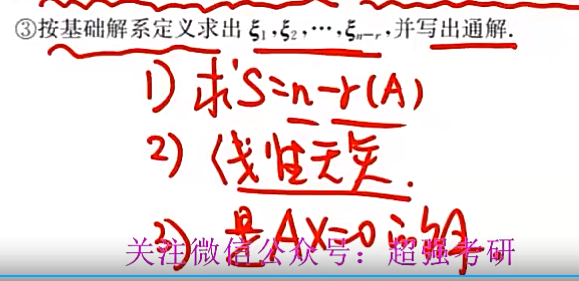 ③按基础解系定义求出 ξ₁,ξ₂,⋯,ξₙ₋ᵣ,并写出通解.
1) 求S=n-r(A)
2) 线性无关.
3) 是AX=0的解
关注微信公众号：超强考研